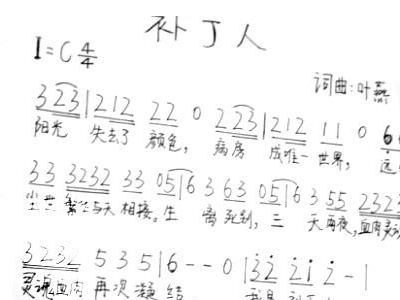 补丁人
1=C 4/4
词曲:叶燕
3 2 3 | 2 1 2 2 2 0 2 2 3 | 2 1 2 1 1 0 6
阳光 失去了 颜色, 病房 成唯一 世界,
3 3 3 2 3 2 3 3 0 5 | 6 3 6 3 0 5 | 6 3 5 5 2 3 2
与天 相接。生 离死别, 三 天两夜, 血肉灵
3 2 3 2 5 3 5 | 6 - - 0 | 3 2 2 1 2 - |
灵魂血肉 再次凝结